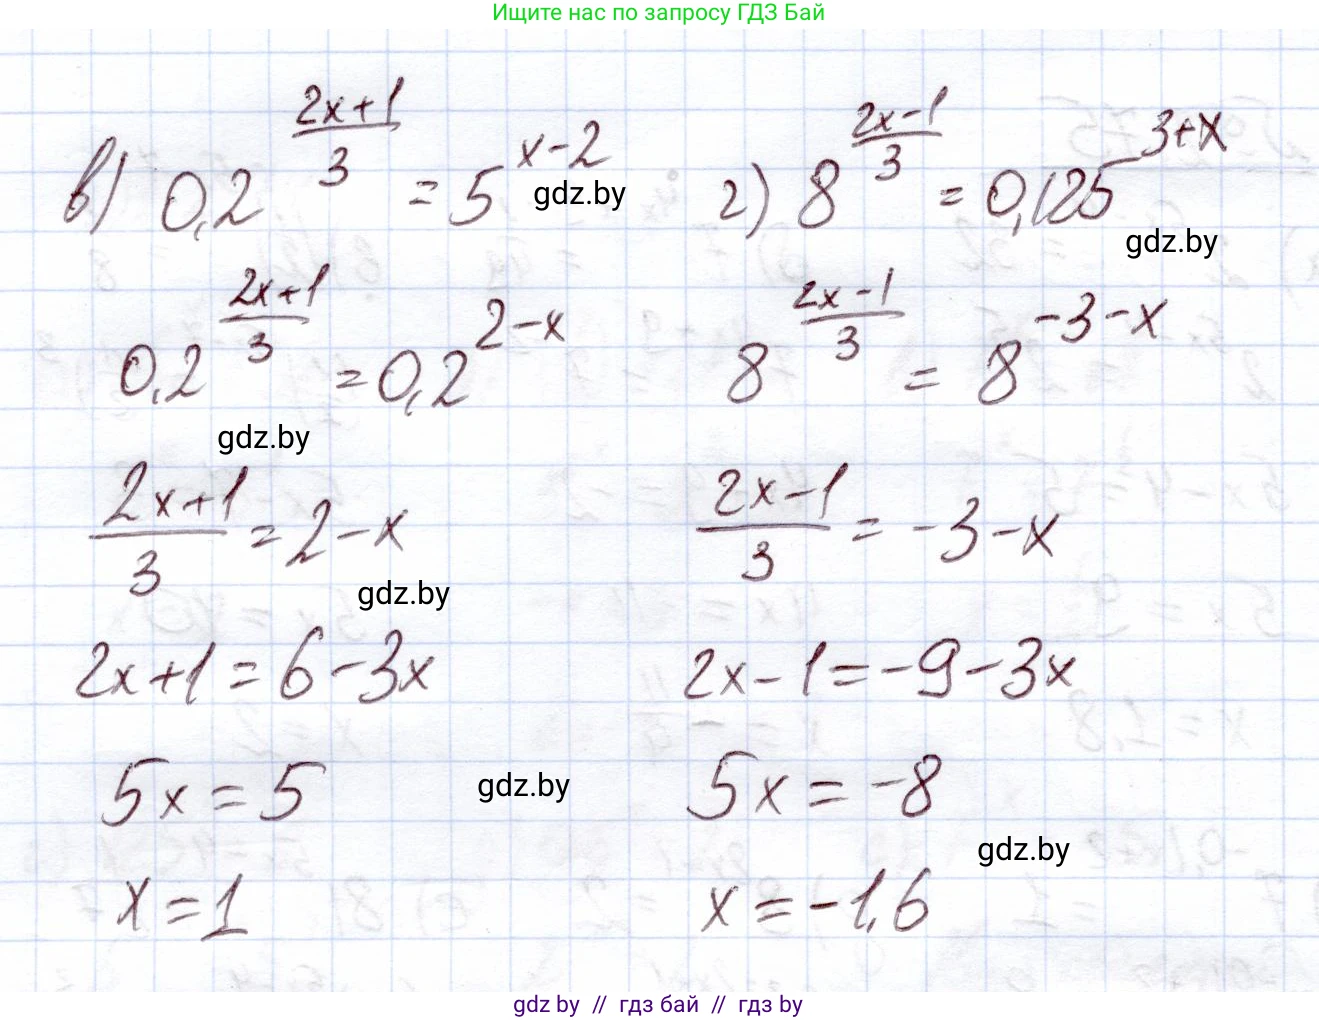 Ищите нас по запросу ГДЗ Бай
в) 0,2^((2x+1)/3) = 5^(x-2)
gdz.by
0,2^((2x+1)/3) = 0,2^(2-x)
gdz.by
(2x+1)/3 = 2-x
gdz.by
2x+1=6-3x
5x=5
gdz.by
x=1
г) 8^((2x-1)/3) = 0,125^(3+x)
gdz.by
8^((2x-1)/3) = 8^(-3-x)
(2x-1)/3 = -3-x
2x-1=-9-3x
5x=-8
gdz.by
x=-1,6
gdz by // гдз бай // гдз by